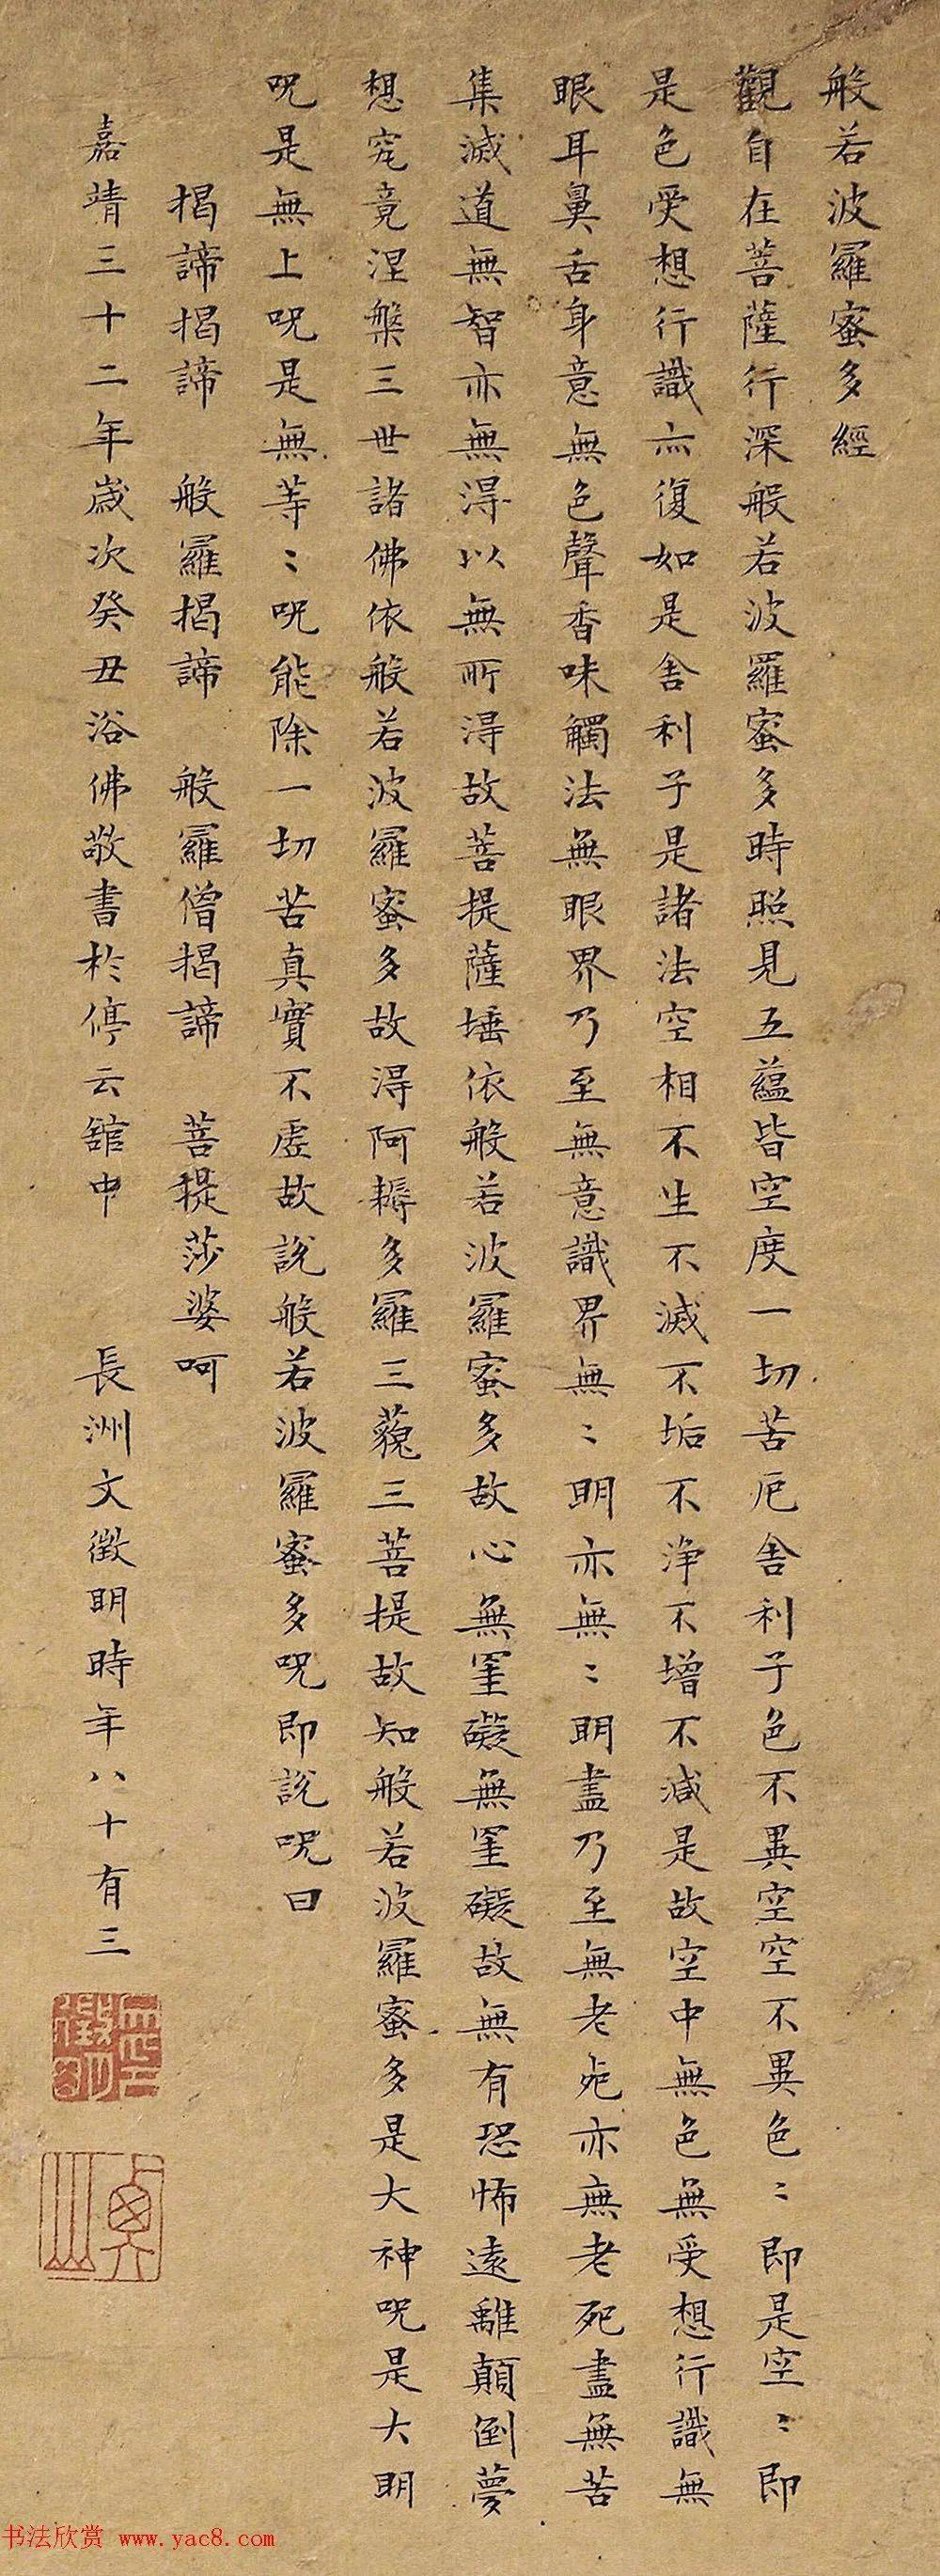 般若波羅蜜多經
觀自在菩薩行深般若波羅蜜多時照見五蘊皆空度一切苦厄舎利子色不異空空不異色〻即是空〻即
是色受想行識亦復如是舎利子是諸法空相不生不滅不垢不淨不增不減是故空中無色無受想行識無
眼耳鼻舌身意無色聲香味觸法無眼界乃至無意識界無〻明亦無〻明盡乃至無老死亦無老死盡無苦
集滅道無智亦無得以無所得故菩提薩埵依般若波羅蜜多故心無罣礙無罣礙故無有恐怖遠離顛倒夢
想究竟涅槃三世諸佛依般若波羅蜜多故得阿耨多羅三藐三菩提故知般若波羅蜜多是大神呪是大明
呪是無上呪是無等〻呪能除一切苦真實不虛故說般若波羅蜜多呪即說呪曰
揭諦揭諦 般羅揭諦 般羅僧揭諦 菩提莎婆呵
嘉靖三十二年歲次癸丑浴佛敬書於停云舘中 長洲文徵明時年八十有三
书法欣赏 www.yac8.com